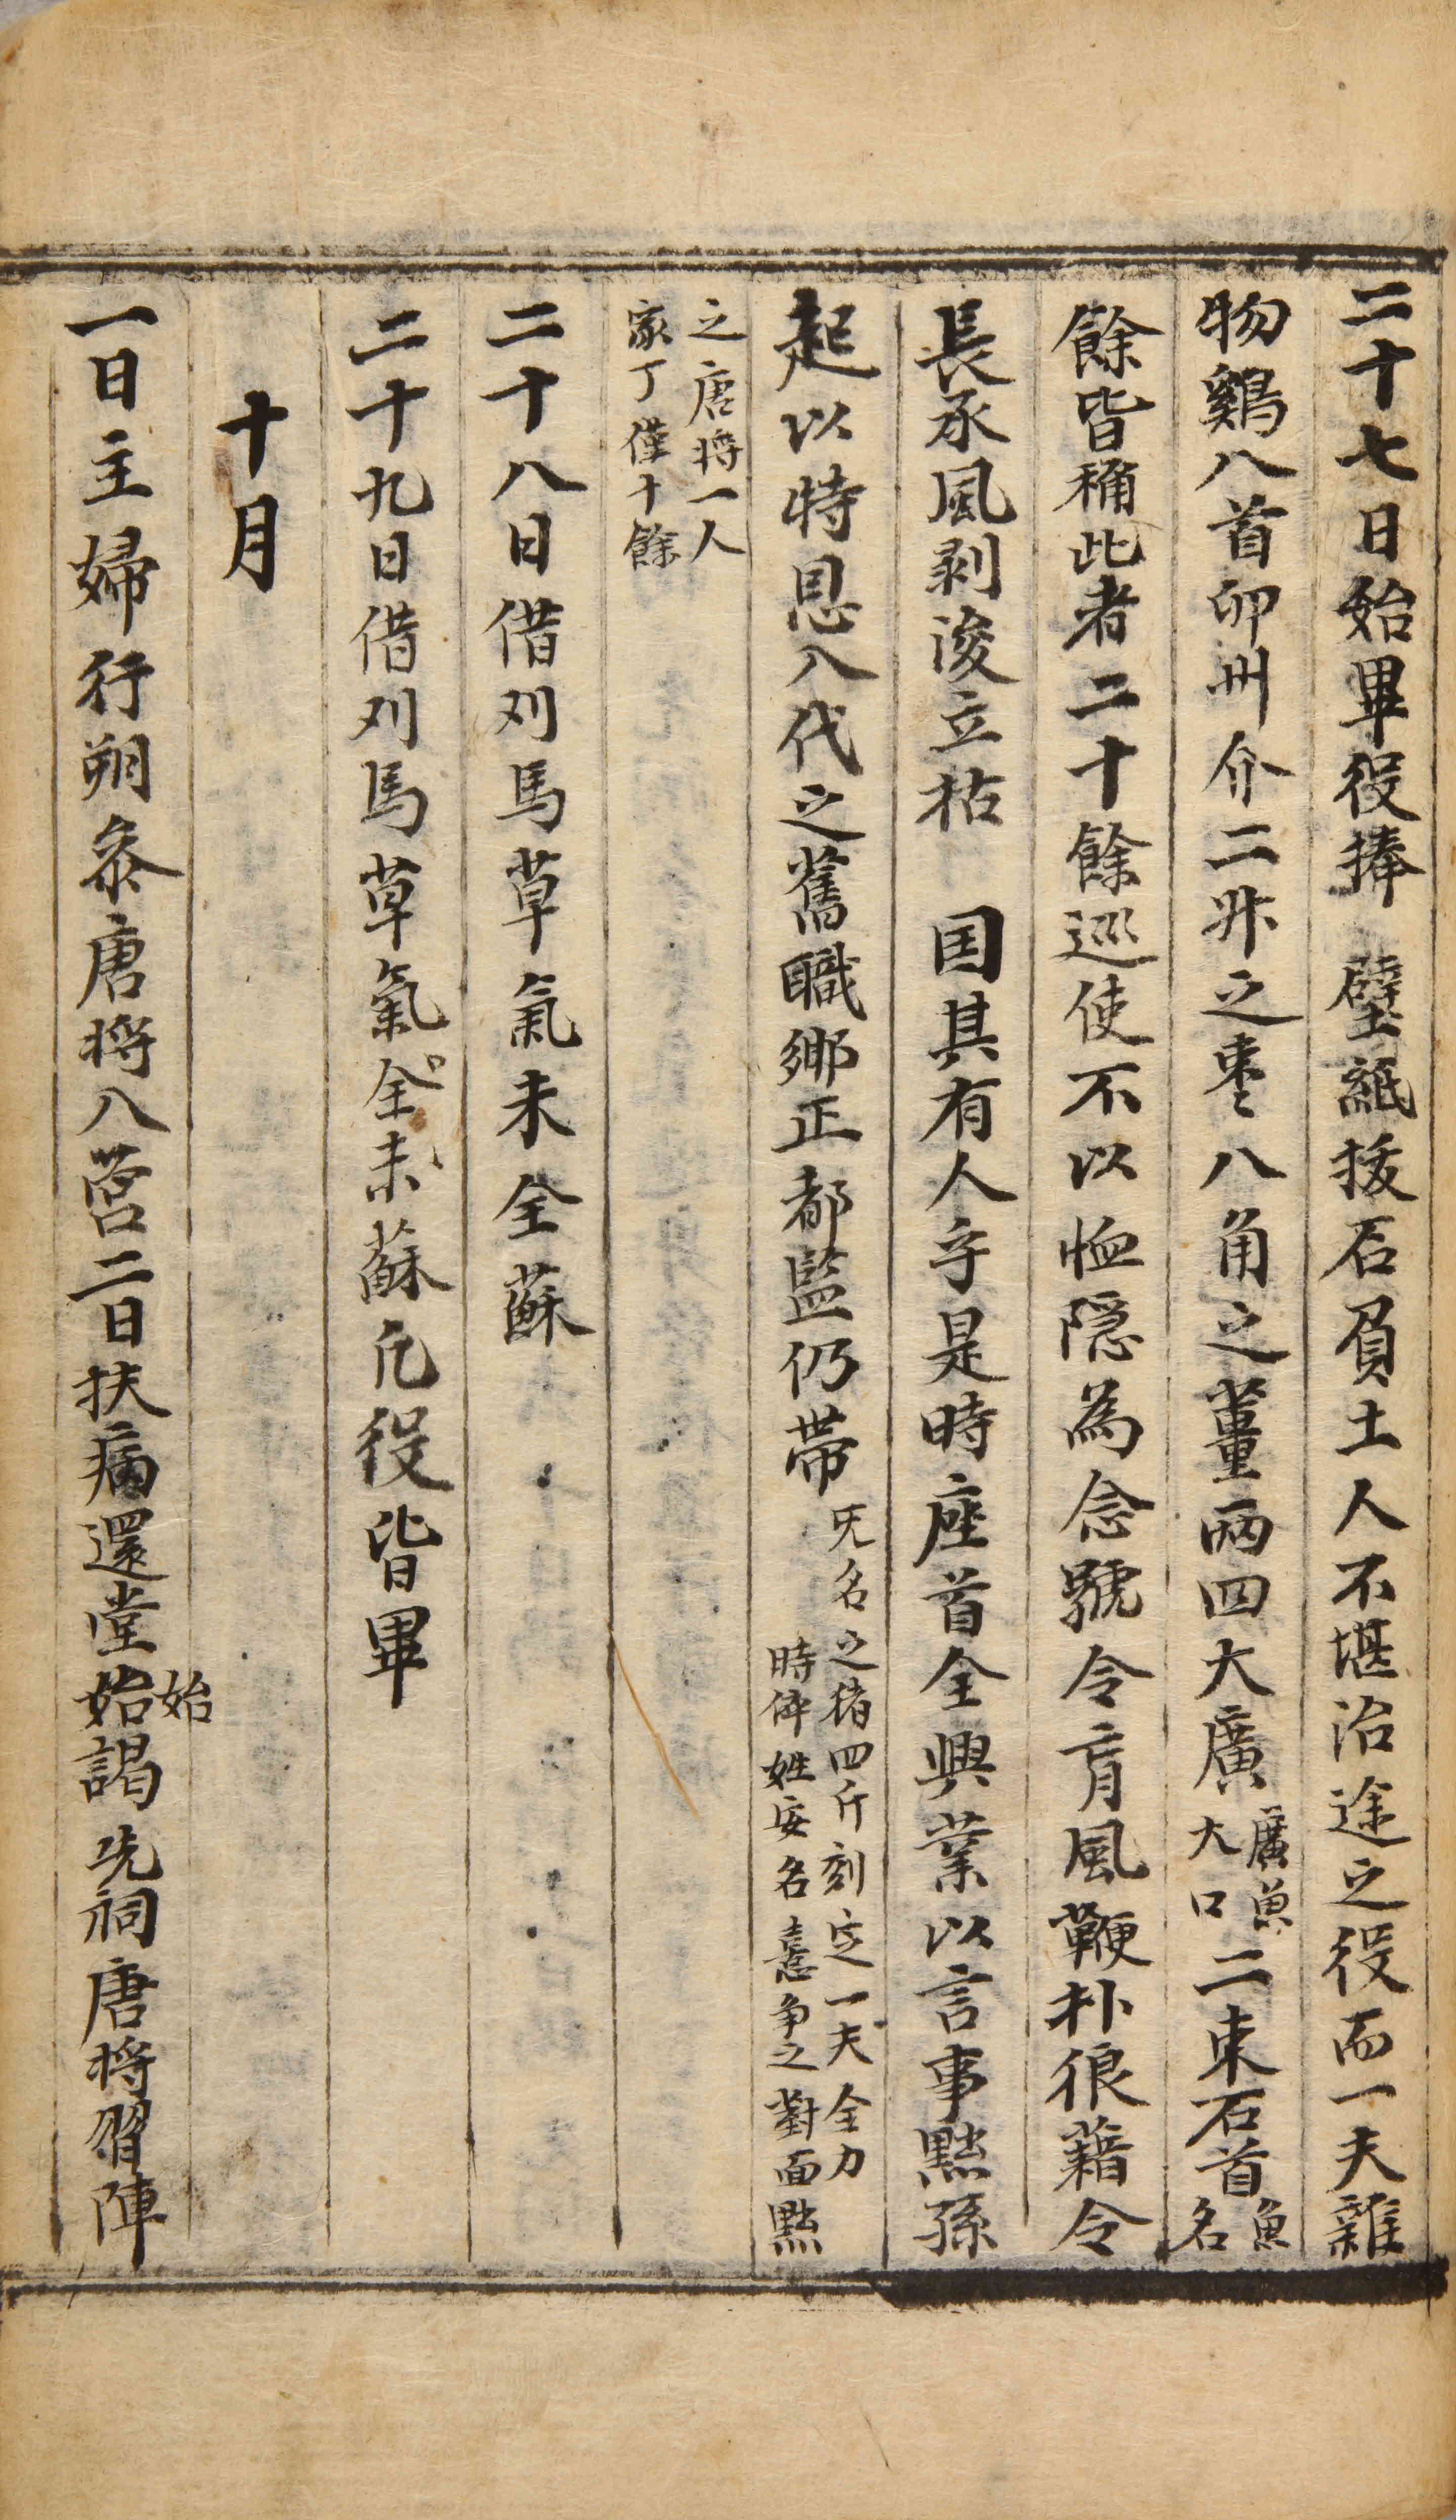 二十七日始畢役捧 璧紙拔石負土人不堪治途之役而一夫雜
物鷄八首卵卅介二升之棗八角之薑兩四大廣廣魚大口二束石首魚名
餘皆稱此者二十餘巡使不以恤隱為念號令肓風鞭朴狼藉令
長承風剥浚立枯 国其有人乎是時座首全興業以言事黜孫
起以特恩八代之舊職鄉正都監仍帶旡名之猪四斤刻定一夫全力時倅姓安名憙争之對面黜
之唐将一人家丁僅十餘
二十八日借刈馬草氣未全蘇
二十九日借刈馬草氣全未蘇凡役皆畢
十月
一日主婦行朔叅唐将八營二日扶病還堂始謁先祠唐将習陣
始